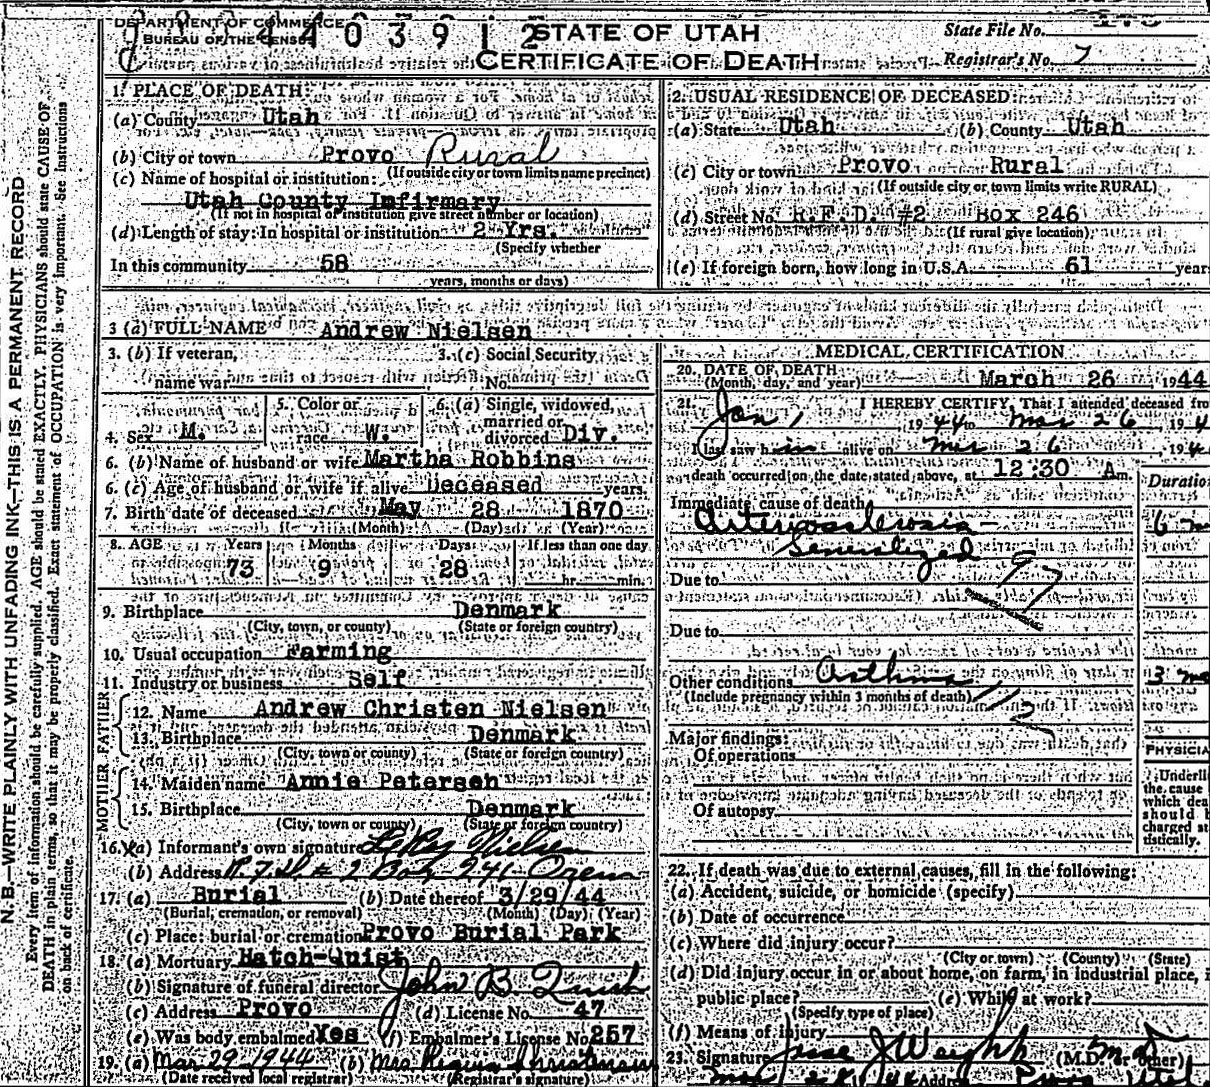 DEPARTMENT OF COMMERCE
BUREAU OF THE CENSUS
4 4 0 3 9 1 2
STATE OF UTAH
CERTIFICATE OF DEATH
State File No.
Registrar's No. 7
N. B.—WRITE PLAINLY WITH UNFADING INK—THIS IS A PERMANENT RECORD
Every item of information should be carefully supplied. AGE should be stated EXACTLY. PHYSICIANS should state CAUSE OF
DEATH in plain terms, so that it may be properly classified. Exact statement of OCCUPATION is very important. See instructions
on back of certificate.
1. PLACE OF DEATH:
(a) County Utah
(b) City or town Provo Rural
(If outside city or town limits name precinct)
(c) Name of hospital or institution:
Utah County Imfirmary
(If not in hospital or institution give street number or location)
(d) Length of stay: In hospital or institution 2 Yrs.
(Specify whether
In this community 58
years, months or days)
2. USUAL RESIDENCE OF DECEASED:
(a) State Utah (b) County Utah
(c) City or town Provo Rural
(If outside city or town limits write RURAL)
(d) Street No. R.F.D. #2 Box 246
(If rural give location)
(e) If foreign born, how long in U.S.A. 61 years
3 (a) FULL NAME Andrew Nielsen
3. (b) If veteran, name war
3. (c) Social Security No.
4. Sex M.
5. Color or race W.
6. (a) Single, widowed, married or divorced Div.
6. (b) Name of husband or wife Martha Robbins
6. (c) Age of husband or wife if alive Deceased years.
7. Birth date of deceased May 28 1870
(Month) (Day) (Year)
8. AGE Years Months Days If less than one day
73 9 28 hr. min.
9. Birthplace Denmark
(City, town, or county) (State or foreign country)
10. Usual occupation Farming
11. Industry or business Self
FATHER
12. Name Andrew Christen Nielsen
13. Birthplace Denmark
(City, town or county) (State or foreign country)
MOTHER
14. Maiden name Annie Petersen
15. Birthplace Denmark
(City, town or county) (State or foreign country)
16. (a) Informant's own signature LeRoy Nielsen
(b) Address R.F.D. # 2 Box 246 Orem
17. (a) Burial (b) Date thereof 3/29/44
(Burial, cremation, or removal) (Month) (Day) (Year)
(c) Place: burial or cremation Provo Burial Park
18. (a) Mortuary Hatch-Quist
(b) Signature of funeral director John B Quist
(c) Address Provo (d) License No. 47
(e) Was body embalmed Yes (f) Embalmer's License No. 257
19. (a) Mar. 29, 1944 (b) Mrs
(Date received local registrar) (Registrar's signature)
MEDICAL CERTIFICATION
20. DATE OF DEATH
(Month, day, and year) March 26 1944
21. I HEREBY CERTIFY, That I attended deceased fro
Jan 1 1944 to Mar 26 194
I last saw him alive on Mar 26, 194
death occurred on the date stated above, at 12:30 A m.
Duratio
Immediate cause of death
Arteriosclerosis— 6 m
Generalized
97
Due to
Due to
Other conditions Asthma 3 mo
(Include pregnancy within 3 months of death)
112
Major findings:
Of operations
Of autopsy
PHYSICIA
Underli
the cause
which dea
should b
charged st
tistically.
22. If death was due to external causes, fill in the following:
(a) Accident, suicide, or homicide (specify)
(b) Date of occurrence
(c) Where did injury occur?
(City or town) (County) (State)
(d) Did injury occur in or about home, on farm, in industrial place, i
public place? (e) While at work?
(Specify type of place)
(f) Means of injury
23. Signature Jesse J Weight (M.D. or other) M D
Address